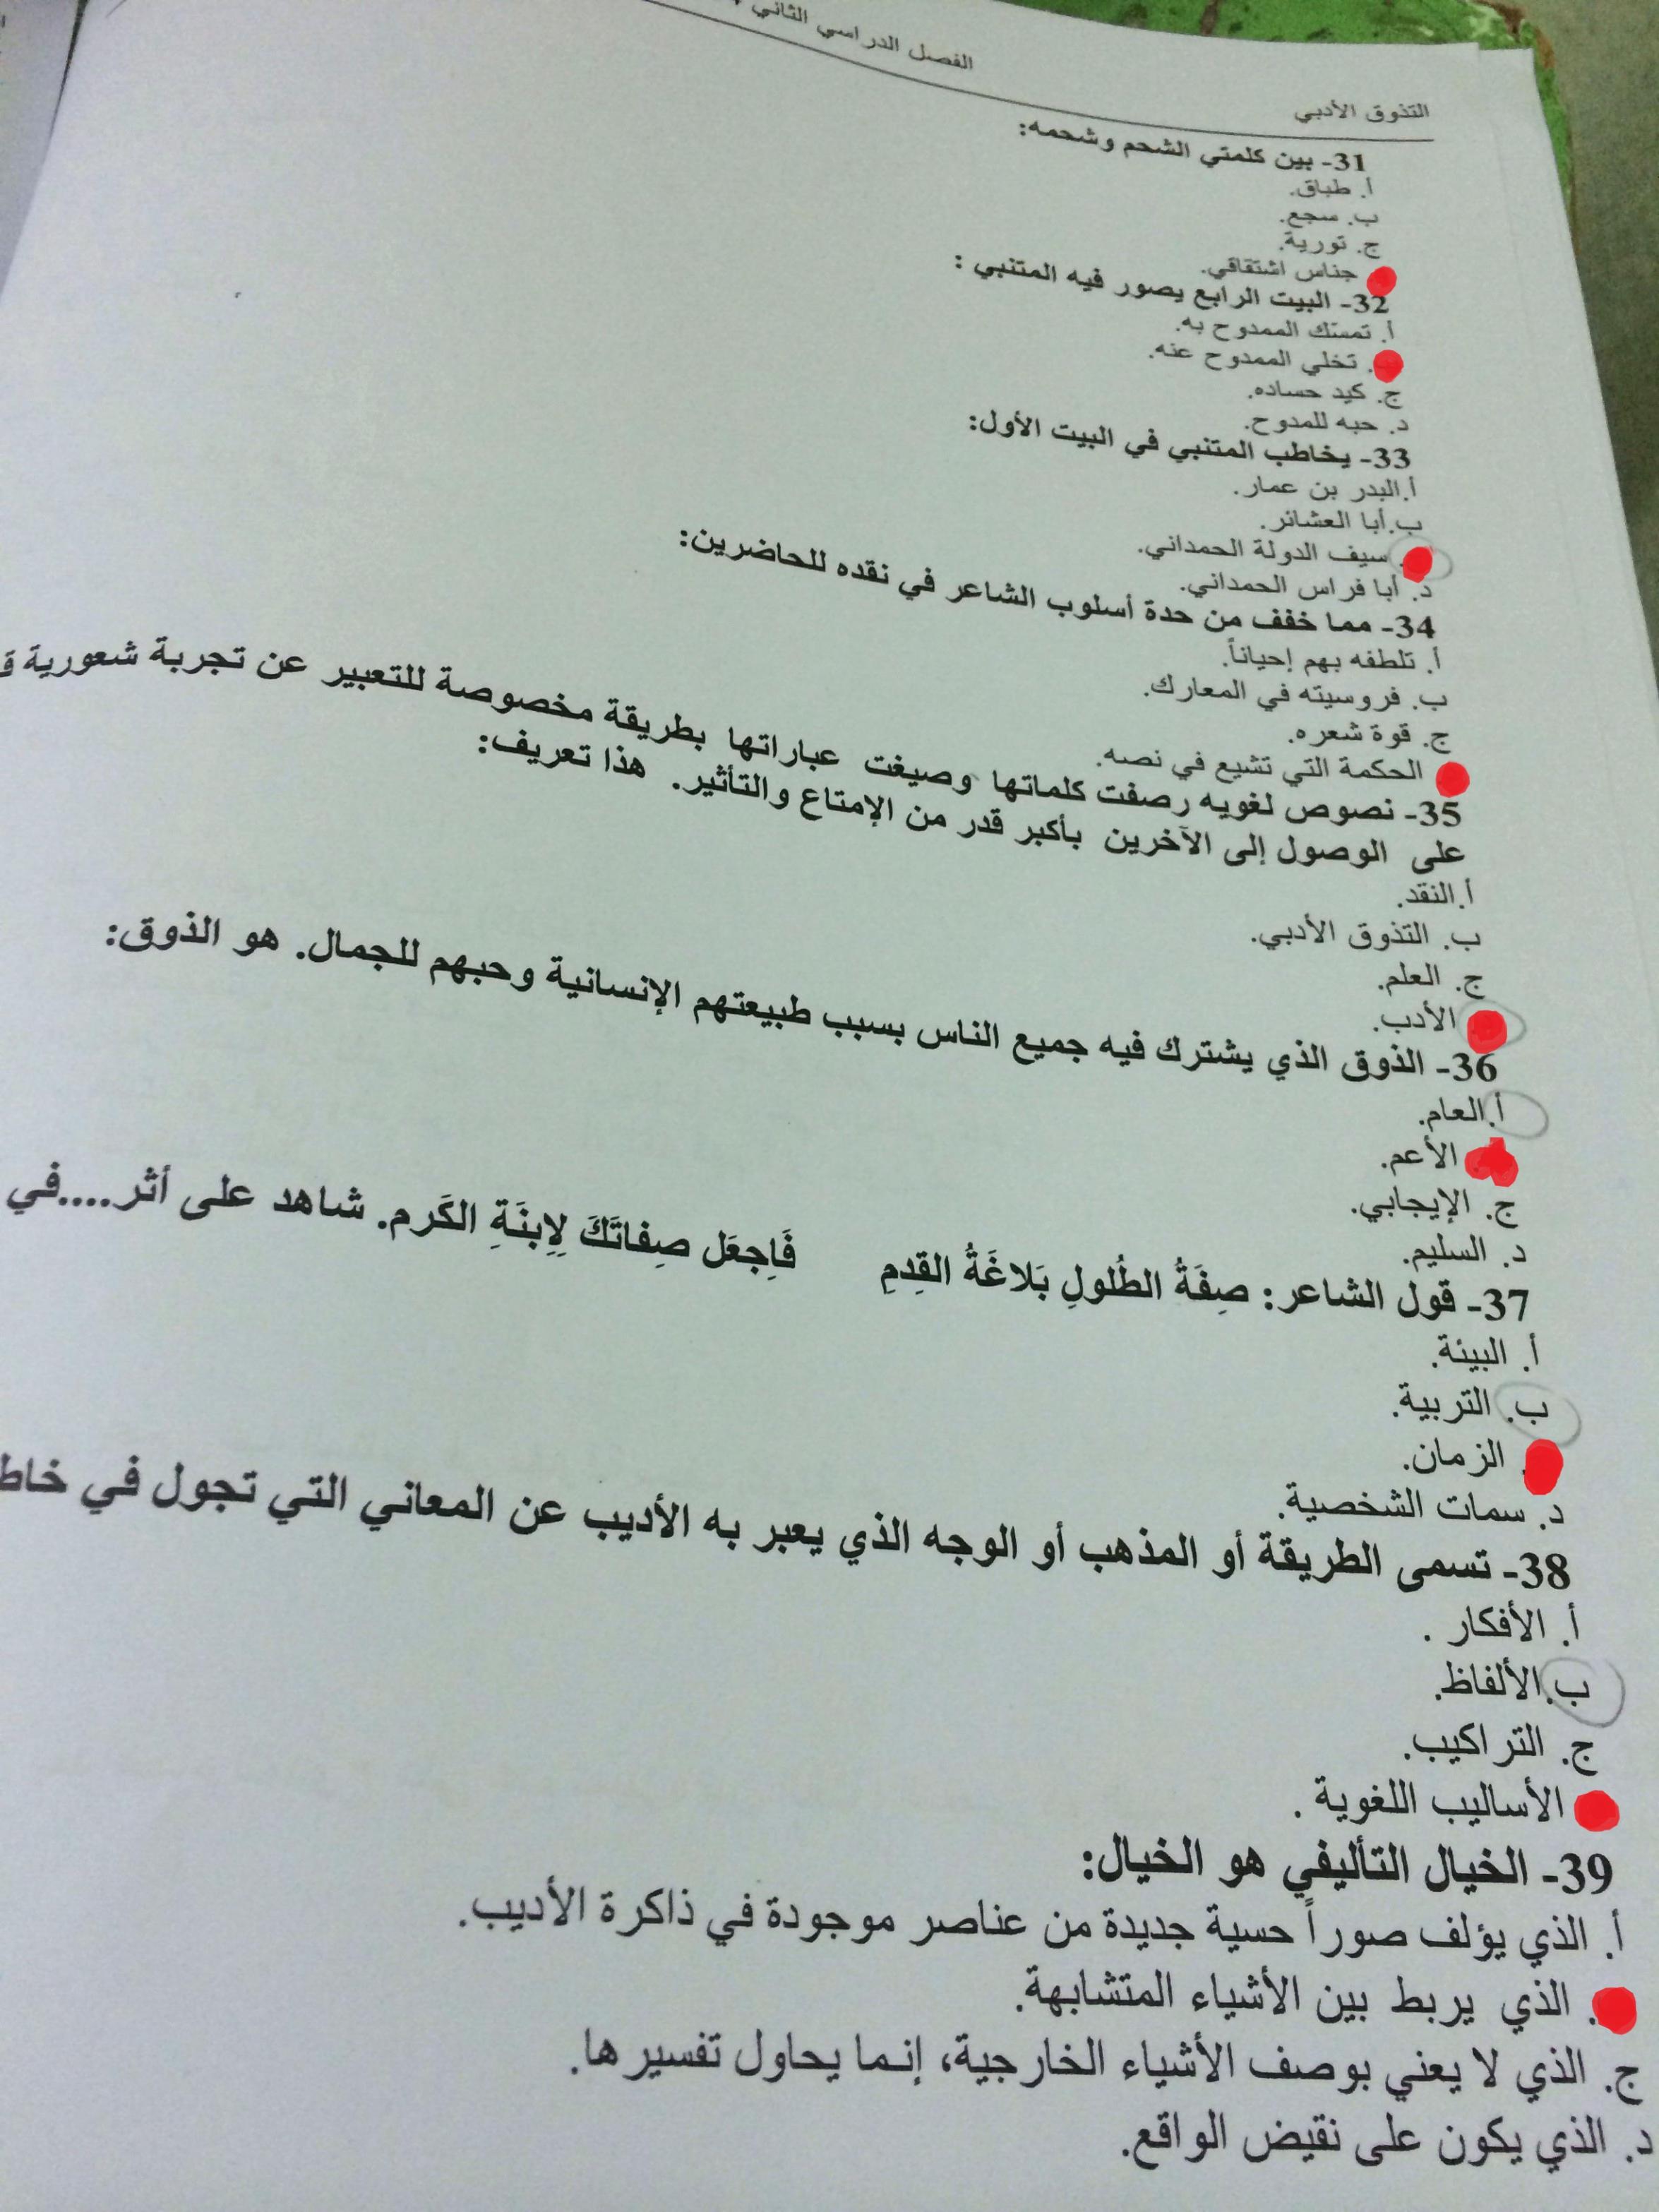 الفصل الدراسي الثاني
التذوق الأدبي
31- بين كلمتي الشحم وشحمه:
أ. طباق.
ب. سجع.
ج. تورية.
جناس اشتقاقي.
32- البيت الرابع يصور فيه المتنبي :
أ. تمسك الممدوح به.
. تخلي الممدوح عنه.
ج. كيد حساده.
د. حبه للمدوح.
33- يخاطب المتنبي في البيت الأول:
أ.البدر بن عمار.
ب.أبا العشائر.
. سيف الدولة الحمداني.
د. أبا فراس الحمداني.
34- مما خفف من حدة أسلوب الشاعر في نقده للحاضرين:
أ. تلطفه بهم إحياناً.
ب. فروسيته في المعارك.
ج. قوة شعره.
الحكمة التي تشيع في نصه.
35- نصوص لغويه رصفت كلماتها وصيغت عباراتها بطريقة مخصوصة للتعبير عن تجربة شعورية
على الوصول إلى الآخرين بأكبر قدر من الإمتاع والتأثير. هذا تعريف:
أ.النقد.
ب. التذوق الأدبي.
ج. العلم.
الأدب.
36- الذوق الذي يشترك فيه جميع الناس بسبب طبيعتهم الإنسانية وحبهم للجمال. هو الذوق:
أ.العام.
الأعم.
ج. الإيجابي.
د. السليم.
37- قول الشاعر: صِفَةُ الطُلولِ بَلاغَةُ القِدمِ فَاِجعَل صِفاتَكَ لِاِبنَةِ الكَرم. شاهد على أثر....في
أ. البيئة.
ب. التربية.
. الزمان.
د. سمات الشخصية.
38- تسمى الطريقة أو المذهب أو الوجه الذي يعبر به الأديب عن المعاني التي تجول في
أ. الأفكار .
ب.الألفاظ.
ج. التراكيب.
الأساليب اللغوية .
39- الخيال التأليفي هو الخيال:
أ. الذي يؤلف صوراً حسية جديدة من عناصر موجودة في ذاكرة الأديب.
. الذي يربط بين الأشياء المتشابهة.
ج. الذي لا يعني بوصف الأشياء الخارجية، إنما يحاول تفسيرها.
د. الذي يكون على نقيض الواقع.